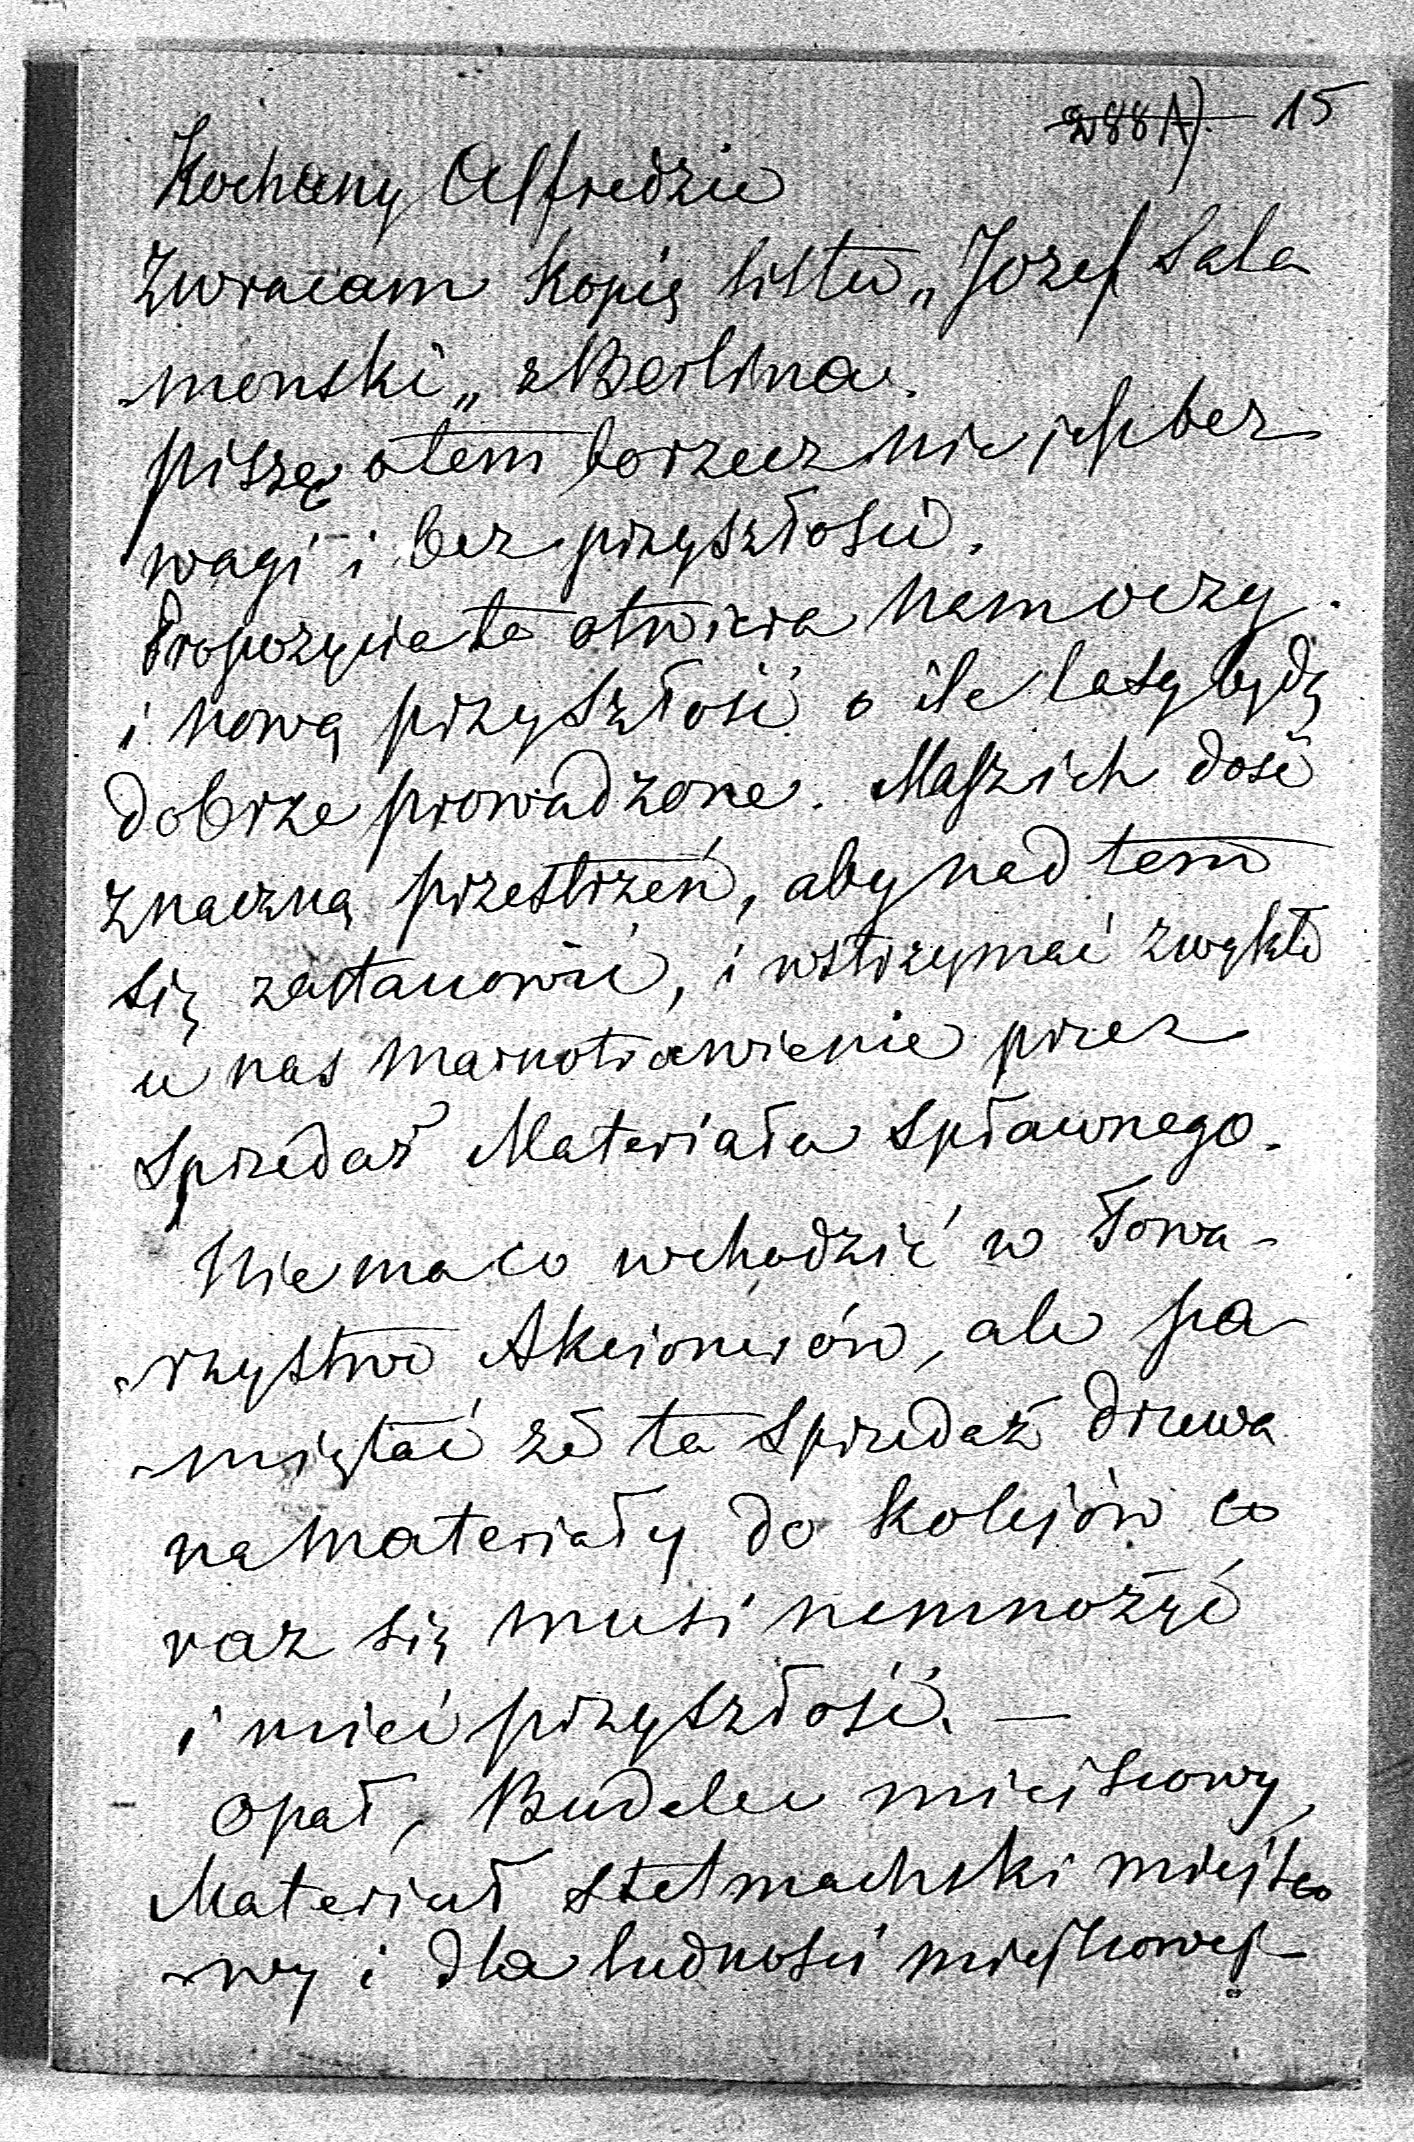 288A). 15
Kochany Alfredzie
Zwracam kopię listu „Jozef Sala
monski„ z Berlina.
piszę o tem bo rzecz nie jest bez
wagi i bez przyszłości.
Propozycia ta otwiera nam oczy
i nową przyszłość o ile lasy będą
dobrze prowadzone. Masz ich dość
znaczną przestrzeń, aby nad tem
się zastanowić, i wstrzymać zwykłe
u nas marnotrawienie przez
Sprzedaż Materiału spławnego.
Nie ma co wchodzić w Towa-
-rzystwo Akcionerów, ale pa-
-miętać że ta Sprzedaż drzewa
na materiały do kolejów co
raz się musi namnożyć
i mieć przyszłość. —
Opał, Budulec miejscowy,
Materiał stelmachski miejsco
-wy i dla ludności miejscowej